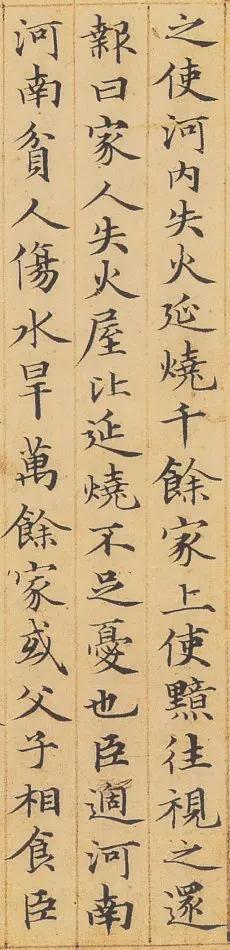 之使河内失火延燒千餘家上使黯往視之還
報曰家人失火屋比延燒不足憂也臣過河南
河南貧人傷水旱萬餘家或父子相食臣